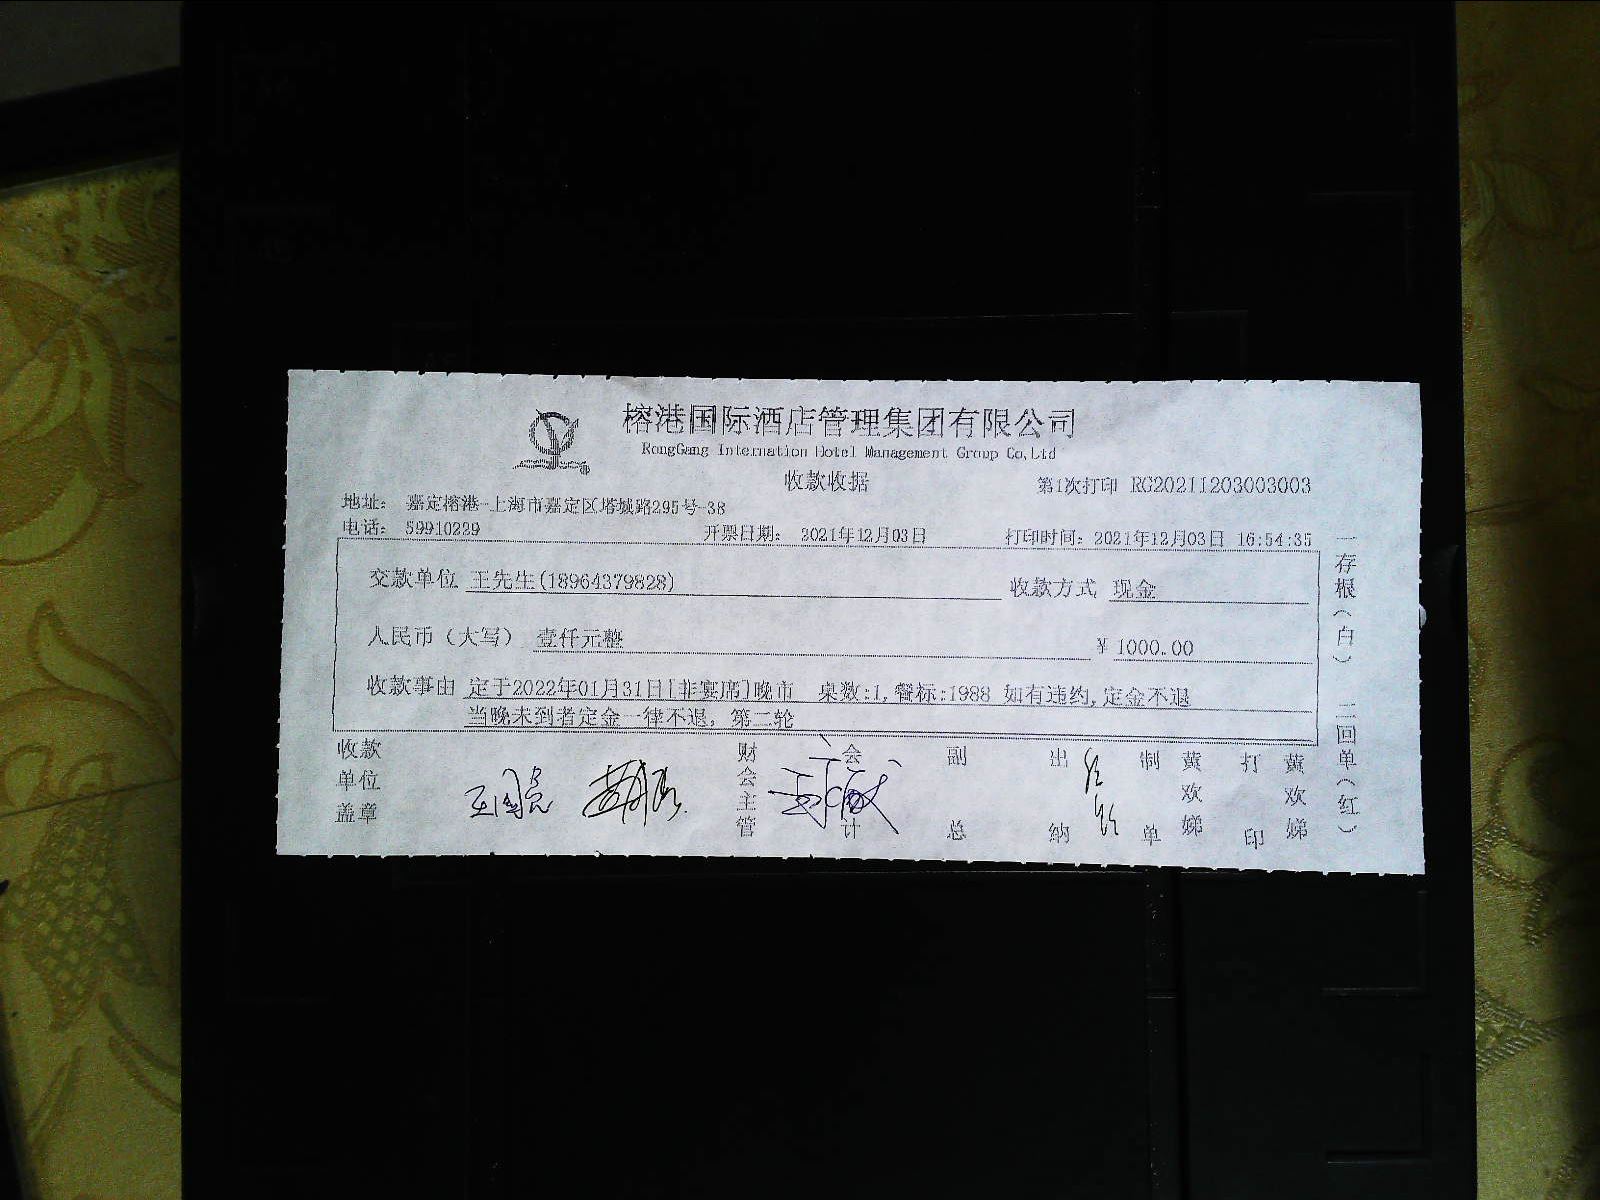 榕港国际酒店管理集团有限公司
RongGang Internation Hotel Management Group Co,Ltd
收款收据
第1次打印 RG20211203003003
地址： 嘉定榕港-上海市嘉定区塔城路295号-38
电话： 59910229 开票日期： 2021年12月03日 打印时间：2021年12月03日 16:54:35
交款单位 王先生(18964379828) 收款方式 现金
人民币（大写） 壹仟元整 ￥1000.00
收款事由 定于2022年01月31日[非宴席]晚市 桌数:1,餐标:1988 如有违约,定金不退
当晚未到者定金一律不退，第二轮
收款单位盖章
财会主管
会计
副总
出纳
制单
黄欢娣
打印
黄欢娣
一存根（白） 二回单（红）